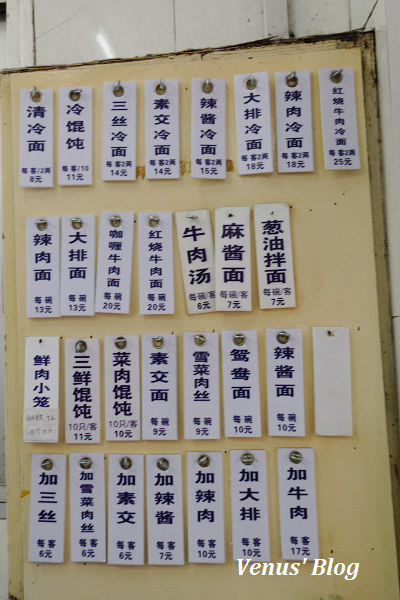 清冷面
每客/2两
8元
冷馄饨
每客/10
11元
三丝冷面
每客2两
14元
素交冷面
每客2两
14元
辣酱冷面
每客2两
15元
大排冷面
每客2两
18元
辣肉冷面
每客2两
18元
红烧牛肉冷面
每客2两
25元
辣肉面
每碗
13元
大排面
每碗
13元
咖喱牛肉面
每碗
20元
红烧牛肉面
每碗
20元
牛肉汤
每碗/客
6元
麻酱面
每碗/客
7元
葱油拌面
每碗/客
7元
鲜肉小笼
三鲜馄饨
10只/客
11元
菜肉馄饨
10只/客
10元
素交面
每碗
9元
雪菜肉丝
每碗
9元
鸳鸯面
每碗
10元
辣酱面
每碗
10元
加三丝
每客
6元
加雪菜肉丝
每客
6元
加素交
每客
6元
加辣酱
每客
7元
加辣肉
每客
10元
加大排
每客
10元
加牛肉
每客
17元
Venus' Blog